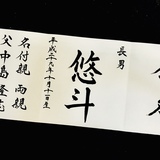 長男
悠斗
平成二十九年十月十一日生
名付親 両親
父 中島隆